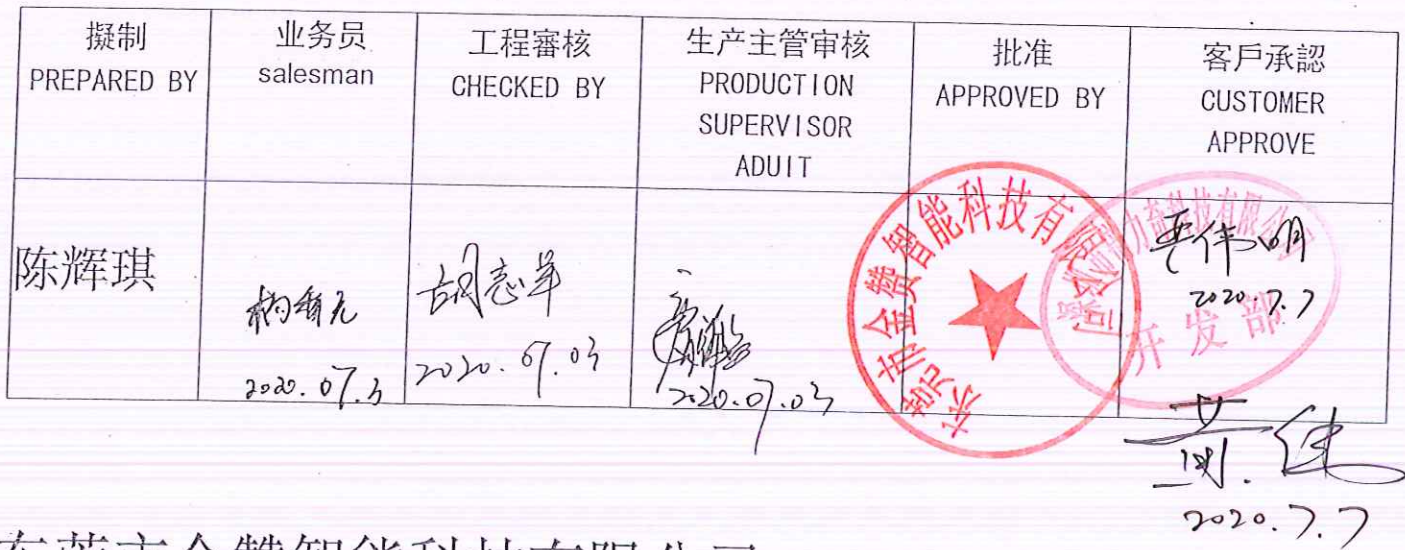 擬制
PREPARED BY
业务员
salesman
工程審核
CHECKED BY
生产主管审核
PRODUCTION
SUPERVISOR
ADUIT
批准
APPROVED BY
客戶承認
CUSTOMER
APPROVE
陈辉琪
2020.07.3
胡志军
2020.07.03
2020.07.03
东莞市金赞智能科技有限公司
力益科技有限公司
开发部
2020.7.7
2020.7.7
东莞市金赞智能科技有限公司